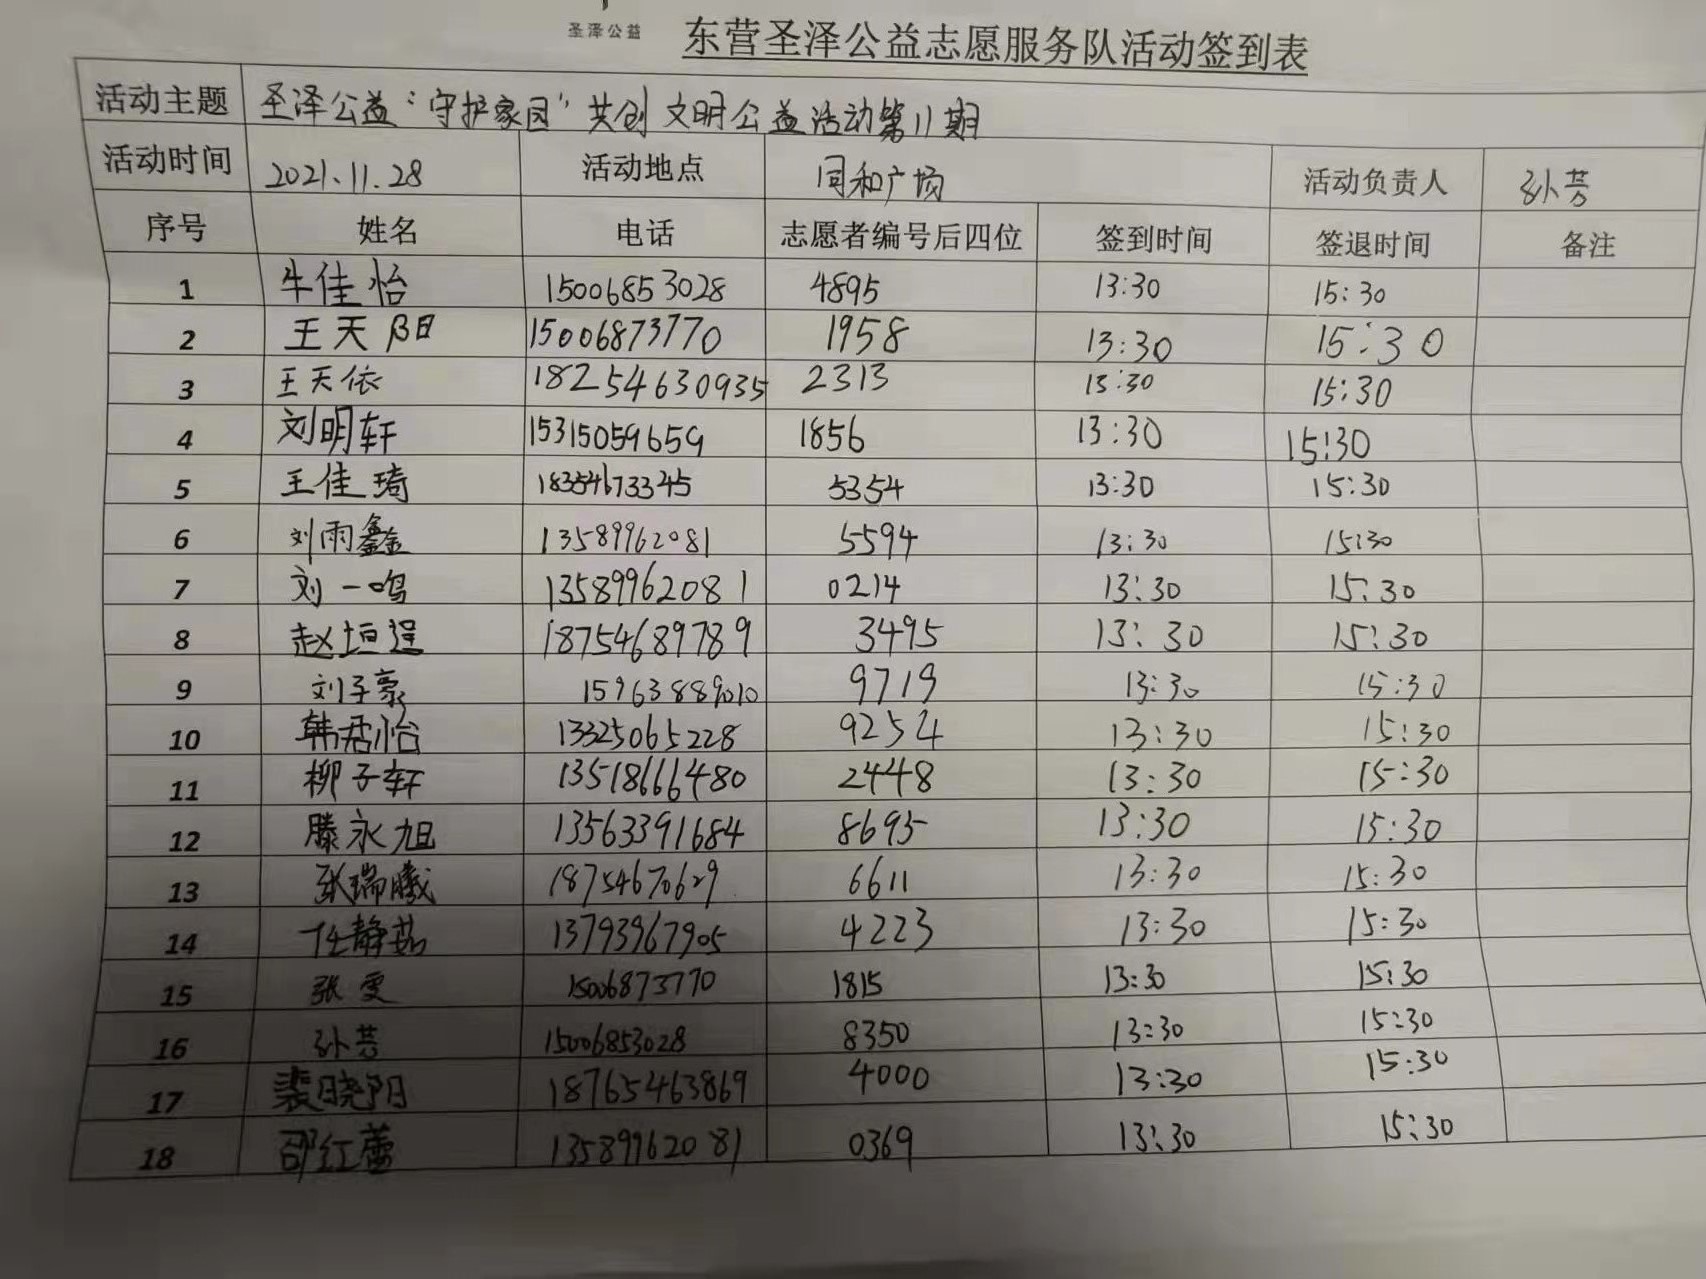 圣泽公益
东营圣泽公益志愿服务队活动签到表
活动主题 圣泽公益“守护家园”共创文明公益活动第11期
活动时间 2021.11.28 活动地点 同和广场 活动负责人 孙芸
序号 姓名 电话 志愿者编号后四位 签到时间 签退时间 备注
1 牛佳怡 15006853028 4895 13:30 15:30
2 王天阳 15006873770 1958 13:30 15:30
3 王天依 18254630935 2313 13:30 15:30
4 刘明轩 15315059659 1856 13:30 15:30
5 王佳琦 18354673345 5354 13:30 15:30
6 刘雨鑫 13589962081 5594 13:30 15:30
7 刘一鸣 13589962081 0214 13:30 15:30
8 赵垣逞 18754689789 3495 13:30 15:30
9 刘子豪 15963889010 9719 13:30 15:30
10 韩君怡 13325065228 9254 13:30 15:30
11 柳子轩 13518666480 2448 13:30 15:30
12 滕永旭 13563391684 8695 13:30 15:30
13 张瑞曦 18754670629 6611 13:30 15:30
14 任静茹 13793967905 4223 13:30 15:30
15 张雯 15006873770 1815 13:30 15:30
16 孙芸 15006853028 8350 13:30 15:30
17 裴晓阳 18765463869 4000 13:30 15:30
18 邵红蕾 13589962081 0369 13:30 15:30